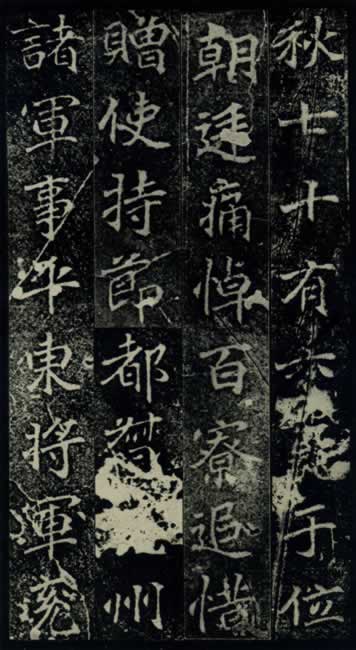 秋七十有六于位
朝廷痛悼百寮追惜
贈使持節都督州
諸軍事平東將軍兖